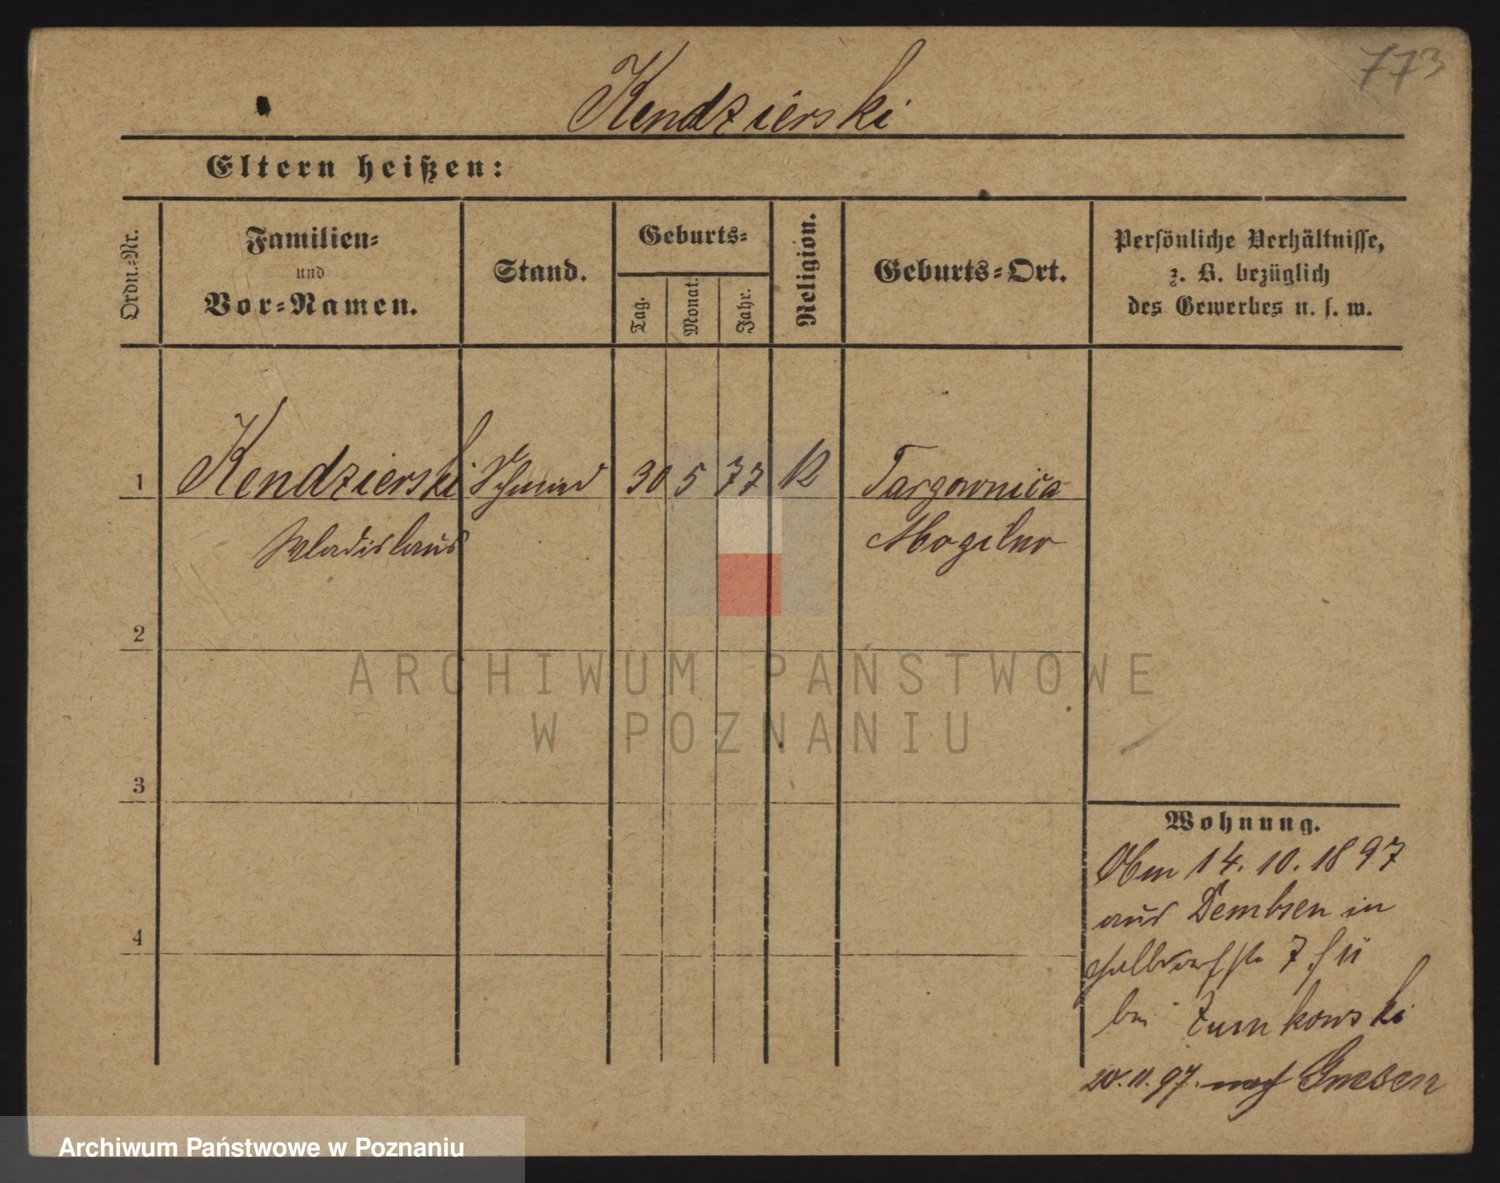 773
Kendzierski
Eltern heißen:
Ordn.-Nr.
Familien-
und
Vor-Namen.
Stand.
Geburts-
Tag.
Monat.
Jahr.
Religion.
Geburts-Ort.
Persönliche Verhältnisse,
z. B. bezüglich
des Gewerbes u. s. w.
1 Kendzierski Schmied 30 5 77 K Targownica
Wladislaus Mogilno
2
3
4
ARCHIWUM PAŃSTWOWE
W POZNANIU
Wohnung.
14. 10. 1897
aus Dembsen in
Halbdorfstr 7
bei Zumkowski
20.11.97. nach Gnesen
Archiwum Państwowe w Poznaniu